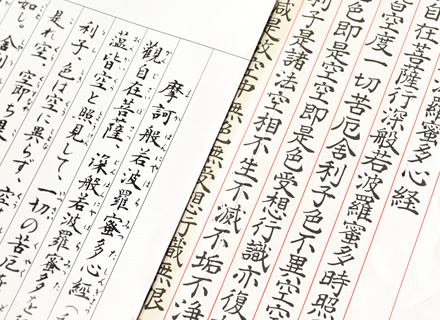 羅蜜多心経
自在菩薩行深般若波羅蜜多時照
皆空度一切苦厄舍利子色不異空空
色即是空空即是色受想行識亦復
利子是諸法空相不生不滅不垢不浄
是故空中無色無受想行識無限
摩訶般若波羅蜜多心経
觀自在菩薩、深般若波羅蜜多を
蘊皆空と照見して、一切の苦厄
利子、色は空に異らず、空
是れ空、空即ち是
如し。舍利